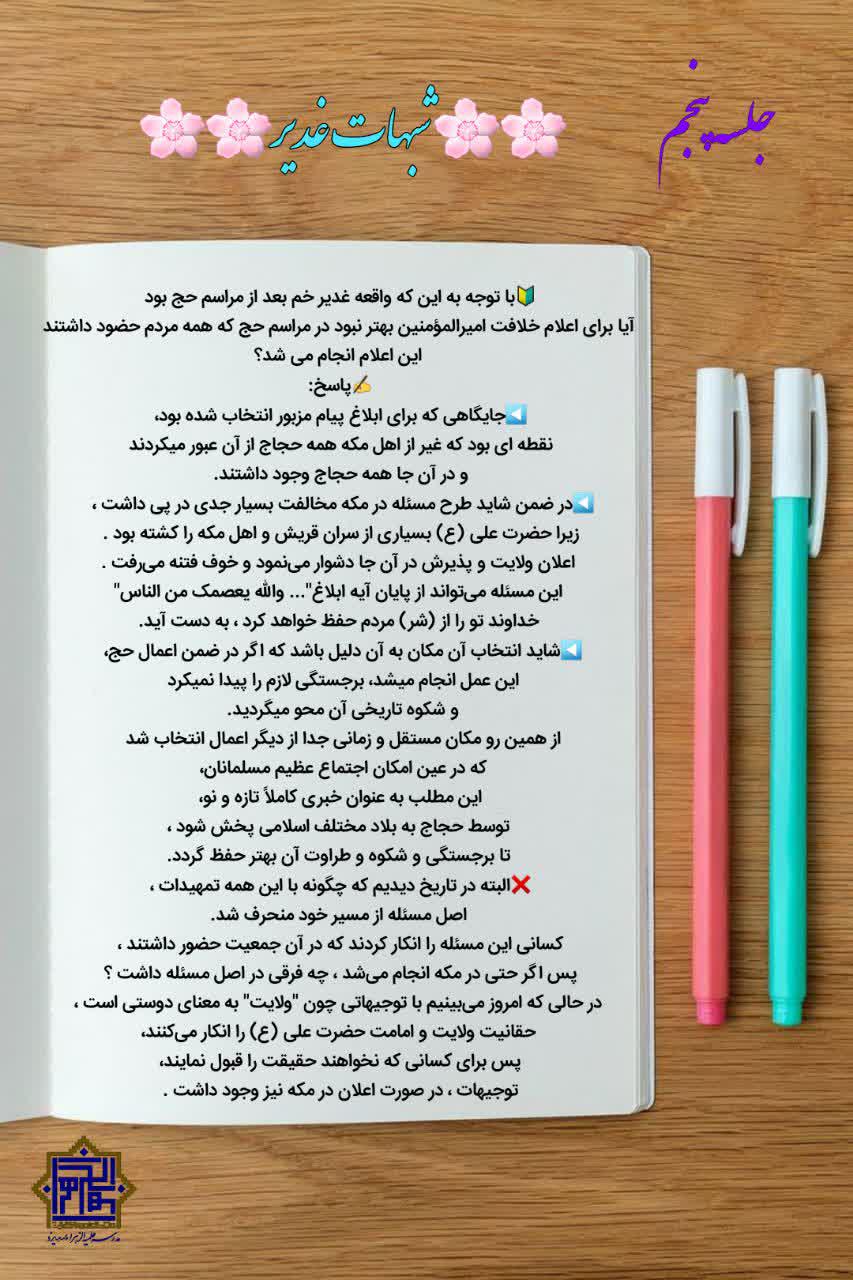 جلسه پنجم
شبهات غدیر
با توجه به این که واقعه غدیر خم بعد از مراسم حج بود
آیا برای اعلام خلافت امیرالمؤمنین بهتر نبود در مراسم حج که همه مردم حضود داشتند
این اعلام انجام می شد؟
پاسخ:
جایگاهی که برای ابلاغ پیام مزبور انتخاب شده بود،
نقطه ای بود که غیر از اهل مکه همه حجاج از آن عبور میکردند
و در آن جا همه حجاج وجود داشتند.
در ضمن شاید طرح مسئله در مکه مخالفت بسیار جدی در پی داشت ،
زیرا حضرت علی (ع) بسیاری از سران قریش و اهل مکه را کشته بود .
اعلان ولایت و پذیرش در آن جا دشوار می‌نمود و خوف فتنه می‌رفت .
این مسئله می‌تواند از پایان آیه ابلاغ"... والله یعصمک من الناس"
خداوند تو را از (شر) مردم حفظ خواهد کرد ، به دست آید.
شاید انتخاب آن مکان به آن دلیل باشد که اگر در ضمن اعمال حج،
این عمل انجام میشد، برجستگی لازم را پیدا نمیکرد
و شکوه تاریخی آن محو میگردید.
از همین رو مکان مستقل و زمانی جدا از دیگر اعمال انتخاب شد
که در عین امکان اجتماع عظیم مسلمانان،
این مطلب به عنوان خبری کاملاً تازه و نو،
توسط حجاج به بلاد مختلف اسلامی پخش شود ،
تا برجستگی و شکوه و طراوت آن بهتر حفظ گردد.
البته در تاریخ دیدیم که چگونه با این همه تمهیدات ،
اصل مسئله از مسیر خود منحرف شد.
کسانی این مسئله را انکار کردند که در آن جمعیت حضور داشتند ،
پس اگر حتی در مکه انجام می‌شد ، چه فرقی در اصل مسئله داشت ؟
در حالی که امروز می‌بینیم با توجیهاتی چون "ولایت" به معنای دوستی است ،
حقانیت ولایت و امامت حضرت علی (ع) را انکار می‌کنند،
پس برای کسانی که نخواهند حقیقت را قبول نمایند،
توجیهات ، در صورت اعلان در مکه نیز وجود داشت .